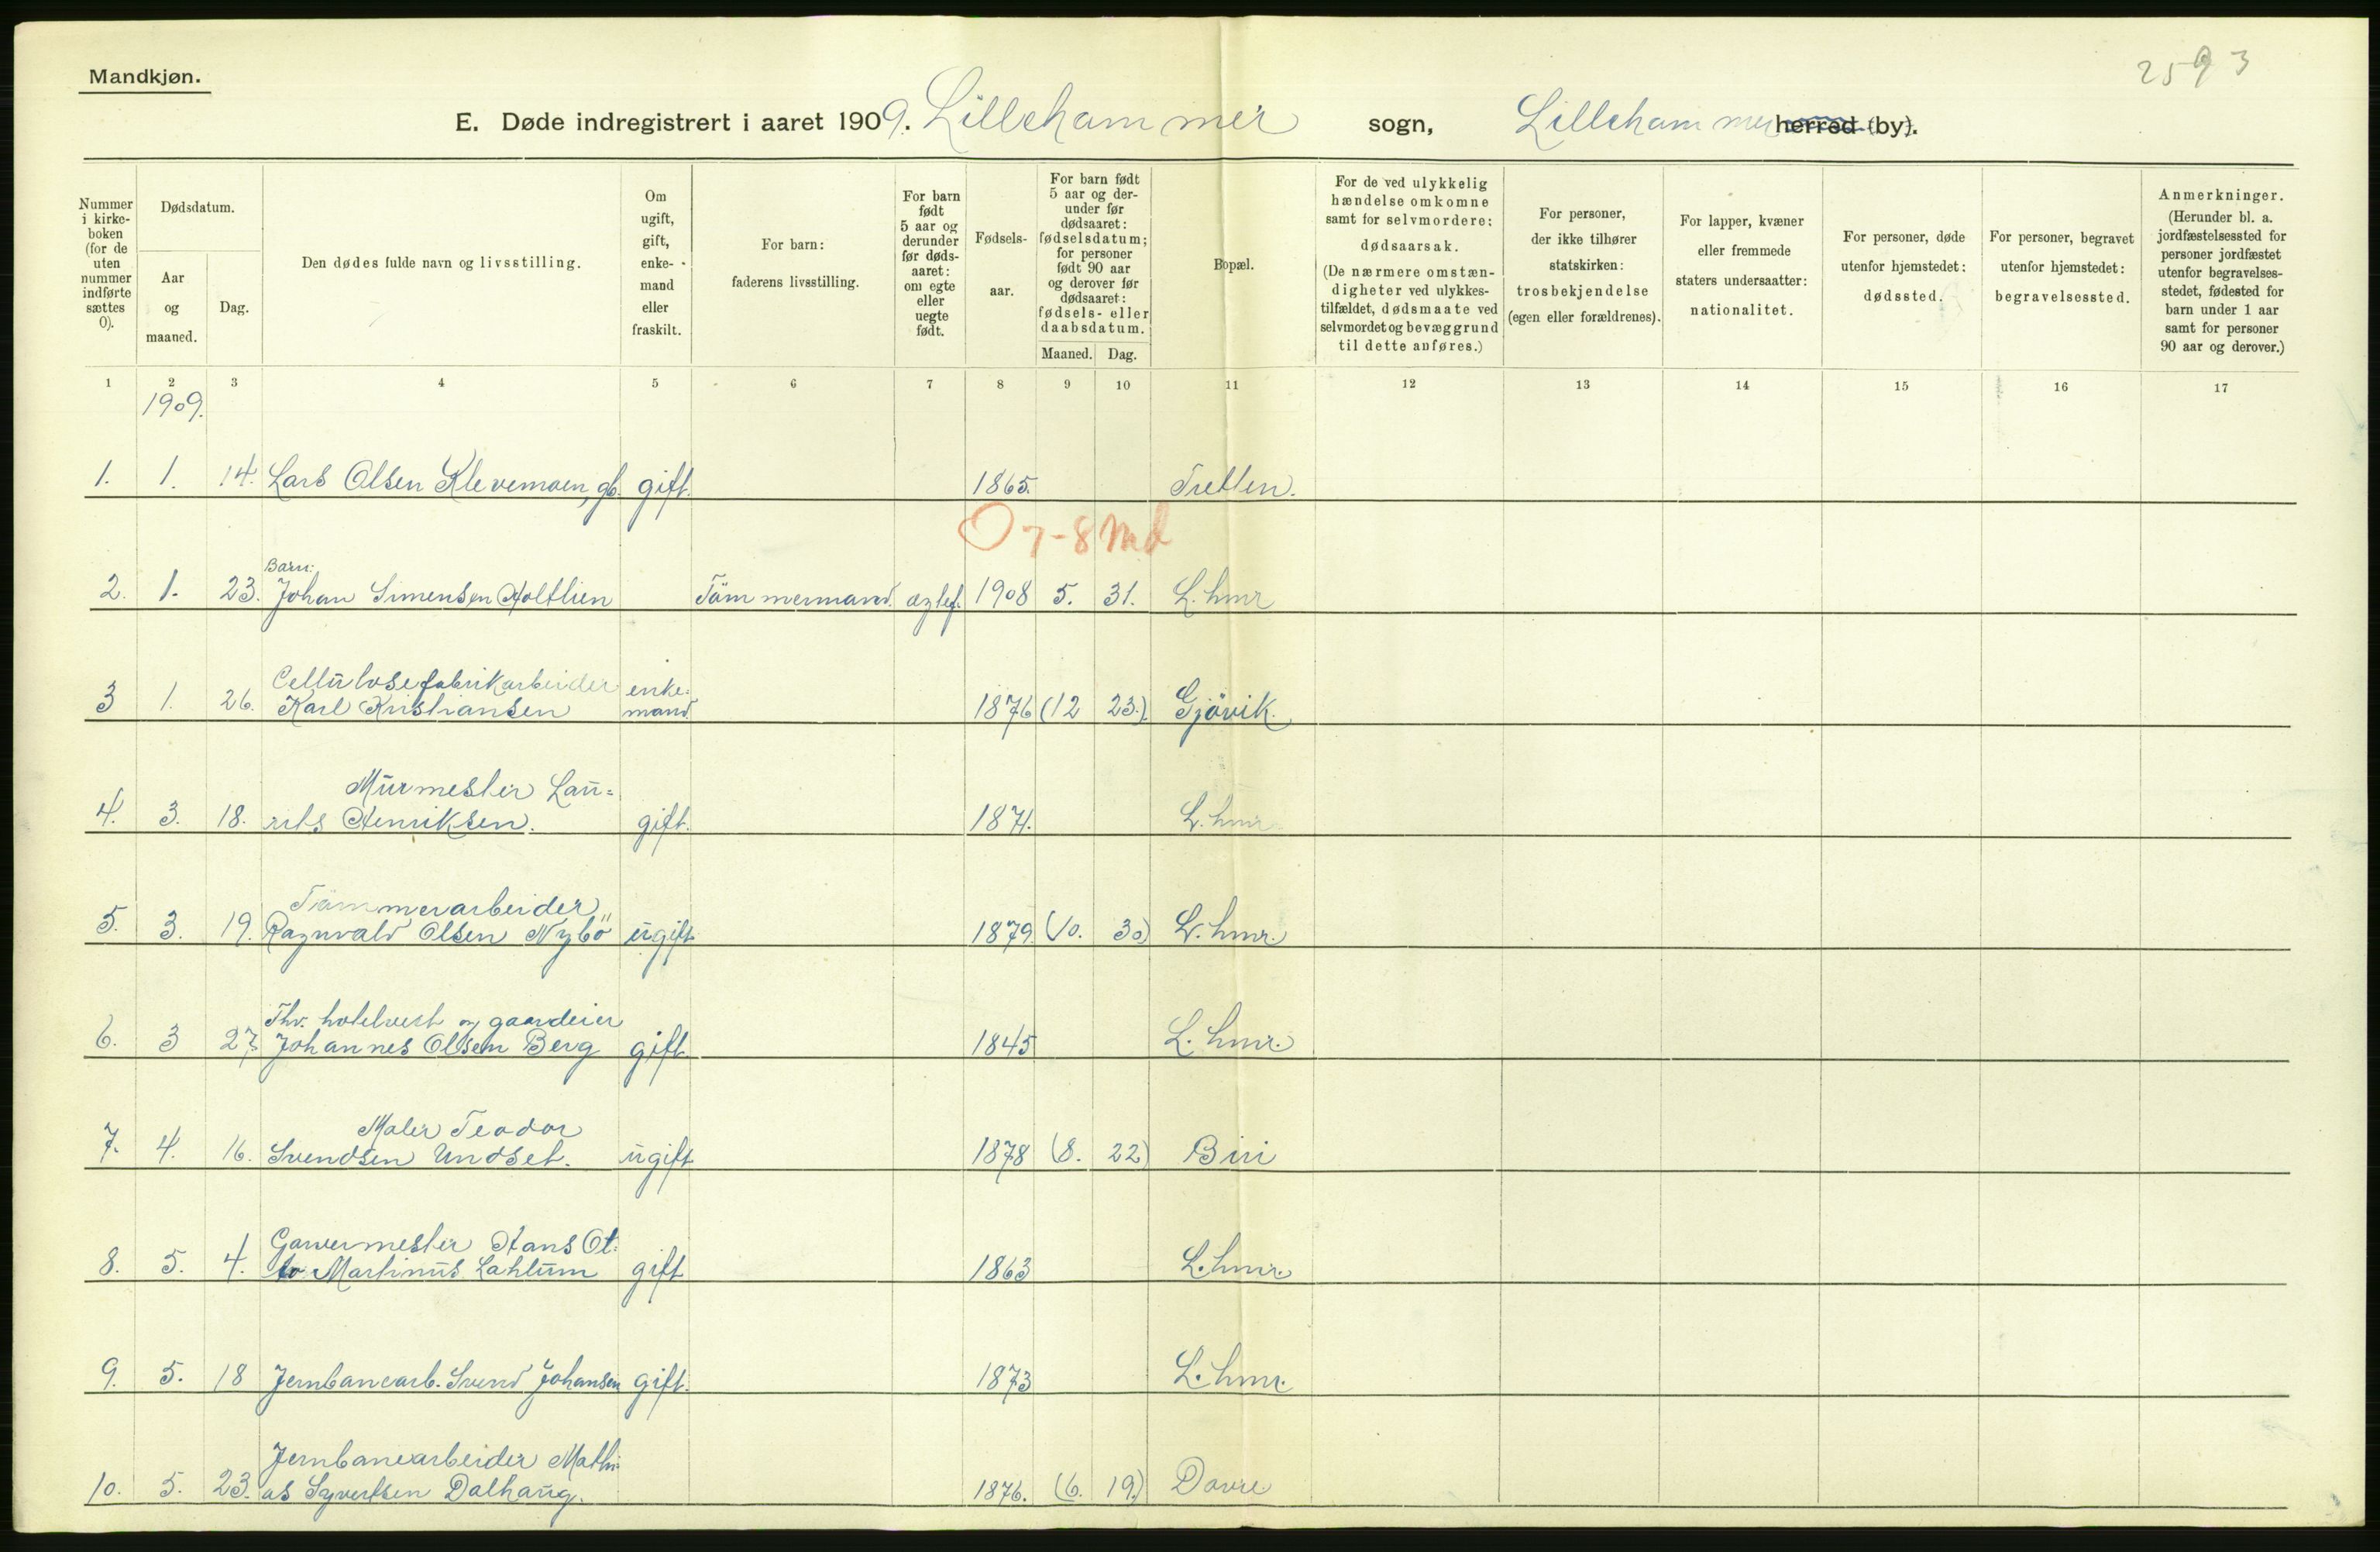 Mandkjøn.
2593
E. Døde indregistrert i aaret 1909. Lillehammer sogn, Lillehammer herred (by).
Nummer i kirkeboken (for de uten nummer indførte sættes 0).
Dødsdatum.
Aar og maaned.
Dag.
Den dødes fulde navn og livsstilling.
Om ugift, gift, enkemand eller fraskilt.
For barn: faderens livsstilling.
For barn født 5 aar og derunder før dødsaaret: om egte eller uegte født.
Fødselsaar.
For barn født 5 aar og derunder før dødsaaret: fødselsdatum; for personer født 90 aar og derover før dødsaaret: fødsels- eller daabsdatum.
Maaned. Dag.
Bopæl.
For de ved ulykkelig hændelse omkomne samt for selvmordere: dødsaarsak. (De nærmere omstændigheter ved ulykkestilfældet, dødsmaate ved selvmordet og bevæggrund til dette anføres.)
For personer, der ikke tilhører statskirken: trosbekjendelse (egen eller forældrenes).
For lapper, kvæner eller fremmede staters undersaatter: nationalitet.
For personer, døde utenfor hjemstedet: dødssted.
For personer, begravet utenfor hjemstedet: begravelsessted.
Anmerkninger. (Herunder bl. a. jordfæstelsessted for personer jordfæstet utenfor begravelsesstedet, fødested for barn under 1 aar samt for personer 90 aar og derover.)
1 2 3 4 5 6 7 8 9 10 11 12 13 14 15 16 17
1909.
1. 1. 14. Lars Olsen Klevemoen, gb. gift. 1865. Tretten.
0 7-8 Md
Barn:
2. 1. 23. Johan Simensen Holtlien Tömmermand. ægtef. 1908 5. 31. L.hmr
Cellulosefabrikarbeider enke-
3 1. 26. Karl Kristiansen mand. 1876 (12 23.). Gjövik.
Murmester Lau-
4. 3. 18. rits Henriksen. gift. 1871. L.hmr
Tömmerarbeider
5. 3. 19. Ragnvald Olsen Nybö ugift 1879. (10. 30) L.hmr.
Fhv. hotelvert og gaardeier
6. 3 27 Johannes Olsen Berg gift 1845 L.hmr.
Maler Teodor
7. 4. 16. Svendsen Undset. ugift 1878 (8. 22) Biri
Garvermester Hans Ot-
8. 5. 4. to Martinus Lahlum gift 1863 L.hmr.
9. 5. 18 Jernbanearb. Svend Johansen gift. 1873 L.hmr.
Jernbanearbeider Mathi-
10. 5. 23. as Syvertsen Dalhaug. 1876. (6. 19.) Dovre